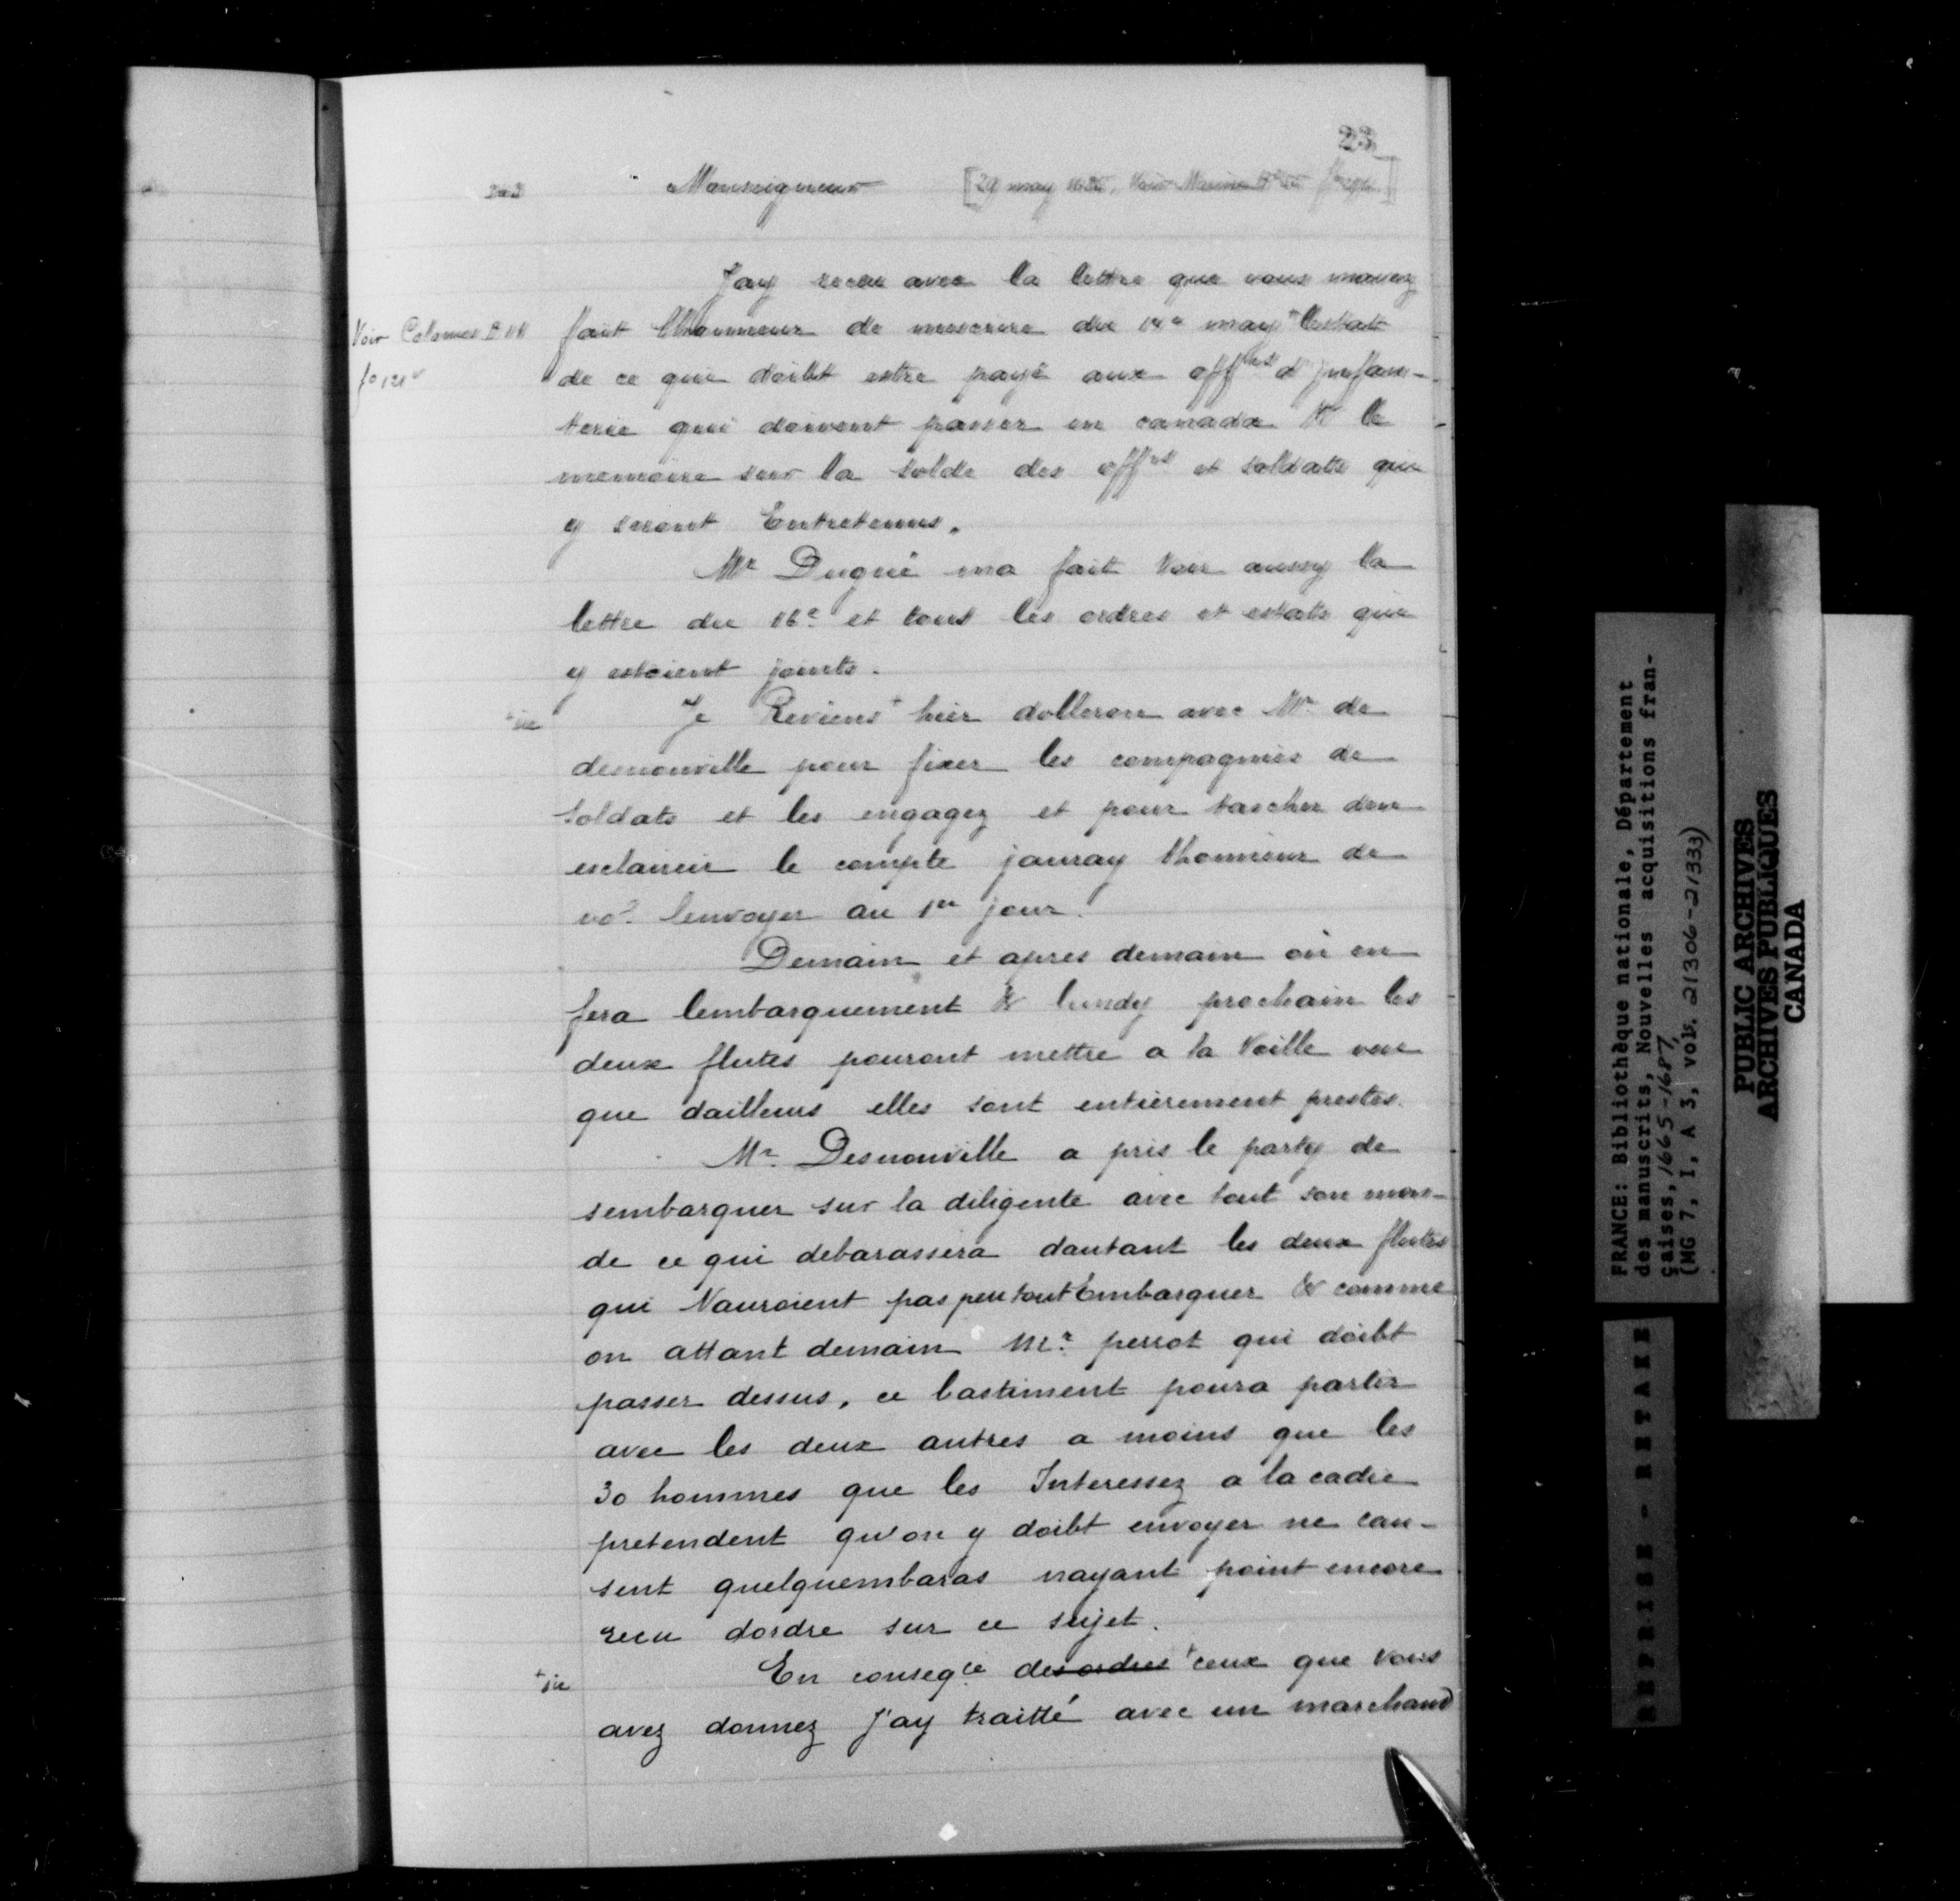 23
Monseigneur [29 may
Jay receu avec la lettre que vous mavez
Voir Colonies B 11
fo 121v
fait lhonneur de mescrire du 14e may lestat
de ce qui doibt estre payé aux offers d'Infan-
terie qui doivent passer en canada & le
memoire sur la solde des offrs et soldats qui
y seront Entretenus.
Mr Dugué ma fait voir aussy la
lettre du 16e et tous les ordres et estats qui
y estoient joints.
+ sic
Je Reviens + hier dolleron avec Mr de
desnonville pour fixer les compagnies de
soldats et les engagez et pour tascher den
esclaircir le compte jauray lhonneur de
vos lenvoyer au 1er jour.
Demain et apres demain on en
fera lembarquement & lundy prochain les
deux flutes pouront mettre a la Voille veu
que dailleurs elles sont entièrement prestes.
Mr. Desnonville a pris le party de
sembarquer sur la diligente avec tout son mon-
de ce qui debarassera dautant les deux flutes
qui Nauroient pas peu tout Embarquer & comme
on attant demain Mr. perrot qui doibt
passer dessus, ce bastiment poura partir
avec les deux autres a moins que les
30 hommes que les Interessez a la cadie
pretendent qu'on y doibt envoyer ne cau-
sent quelquembaras nayant point encore
receu dordre sur ce sujet.
+ sic
En conseqce des ordres + ceux que vous
avez donnez J'ay traitté avec un marchand
FRANCE: Bibliothèque nationale, Département
des manuscrits, Nouvelles acquisitions fran-
çaises, 1665-1687,
(MG 7, I, A 3, vol. 21306-21333)
PUBLIC ARCHIVES
ARCHIVES PUBLIQUES
CANADA
REPRISE - RETAKE